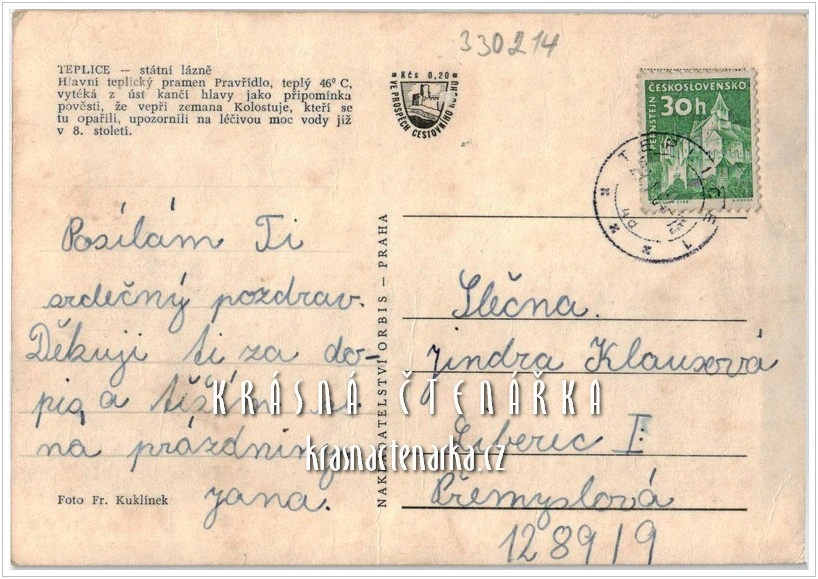 330214
TEPLICE — státní lázně
Hlavní teplický pramen Pravřídlo, teplý 46° C,
vytéká z úst kančí hlavy jako připomínka
pověsti, že vepři zemana Kolostuje, kteří se
tu opařili, upozornili na léčivou moc vody již
v 8. století.
Kčs 0,20
VE PROSPĚCH CESTOVNÍHO RUCHU
ČESKOSLOVENSKO
30h
PERNŠTEJN
TEPLICE
1
Posílám Ti
srdečný pozdrav.
Děkuji ti za do-
pis, a těším se
na prázdniny
Jana.
Foto Fr. Kuklínek
NAKLADATELSTVÍ ORBIS — PRAHA
Slečna.
Jindra Klausová
Liberec I.
Přemyslová
1289/9
KRÁSNÁ ČTENÁŘKA
krasnactenarka.cz